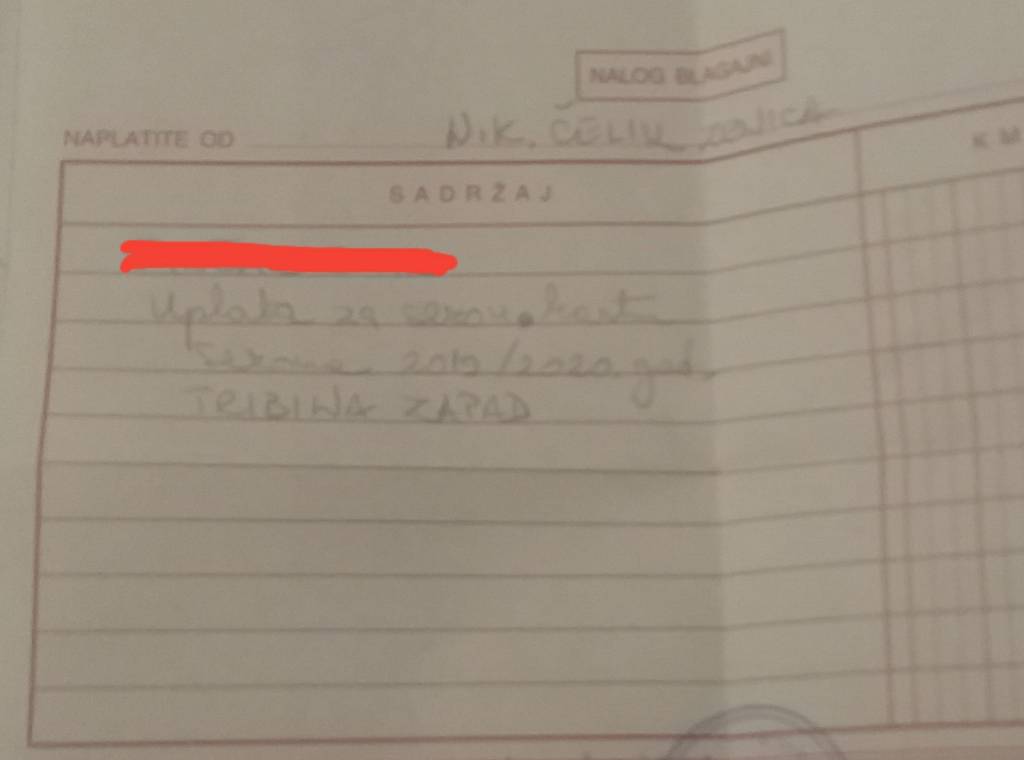 NALOG BLAGAJNI
NAPLATITE OD N.K. ČELIK ZENICA
K M
SADRŽAJ
Uplata za sezon. kart
sezona 2019/2020 god.
TRIBINA ZAPAD